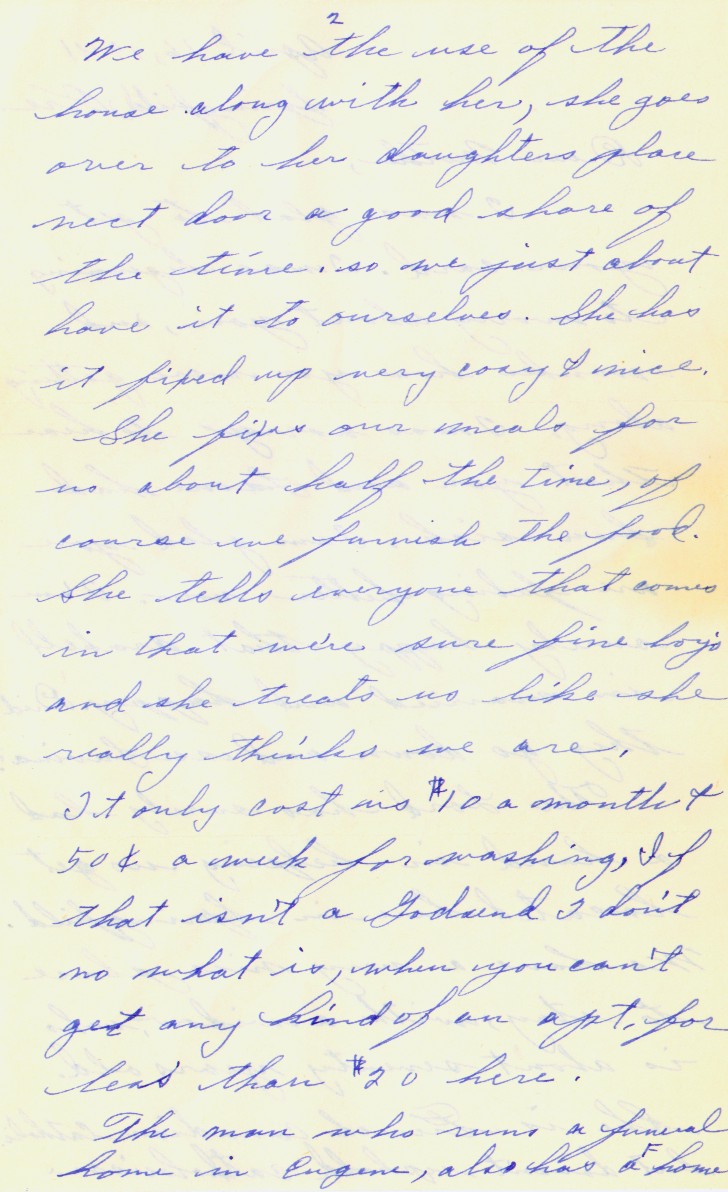 2
We have the use of the
house along with her, she goes
over to her daughters place
nect door a good share of
the time. so we just about
have it to ourselves. She has
it fixed up very cozy & nice.
She fixs our meals for
us about half the time, of
course we furnish the food.
She tells everyone that comes
in that we're sure fine boys
and she treats us like she
really thinks we are.
It only cost us $10 a month &
50¢ a week for washing, If
that isn't a Godsend I don't
no what is, when you can't
get any kind of an apt. for
less than $20 here.
The man who runs a funeral
home in Eugene, also has a F home